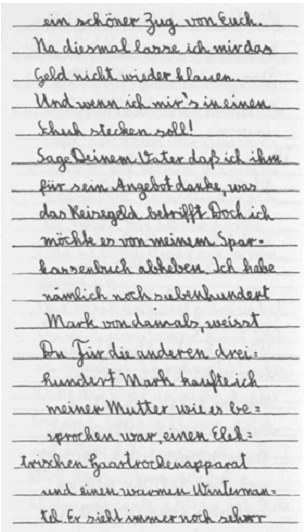 ein schöner Zug von Euch.
Na diesmal lasse ich mir das
Geld nicht wieder klauen.
Und wenn ich mir's in einen
Schuh stecken soll!
Sage Deinem Vater daß ich ihm
für sein Angebot danke, was
das Reisegeld betrifft Doch ich
möchte es von meinem Spar=
kassenbuch abheben. Ich habe
nämlich noch siebenhundert
Mark von damals, weisst
Du Für die anderen drei=
hundert Mark kaufte ich
meiner Mutter wie es be=
sprochen war, einen Elek=
trischen Haartrockenapparat
und einen warmen Winterman=
tel. Er sieht immer noch sehr